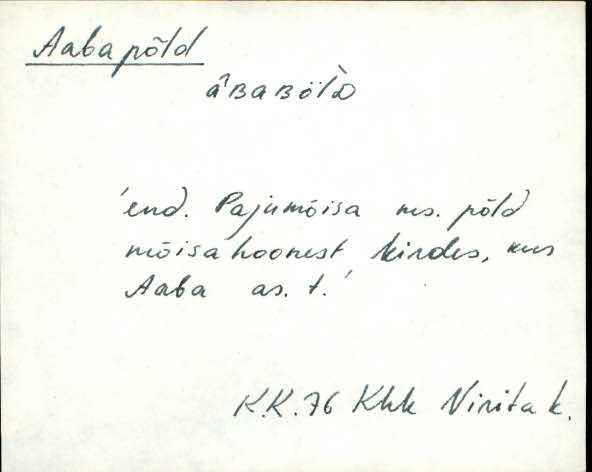 Aabapõld
âʙaʙöl̀ᴅ
'end. Pajumõisa ms. põld
mõisahoonest kirdes, kus
Aaba as. t.'
K.K. 76 Khk Virita k.